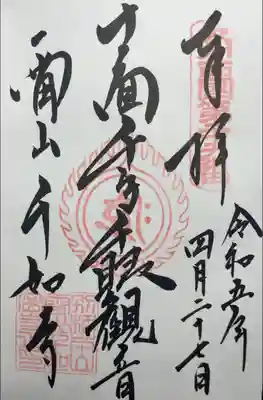 奉拝
令和五年
四月二十七日
十一面千手千眼觀音
雷山千如寺